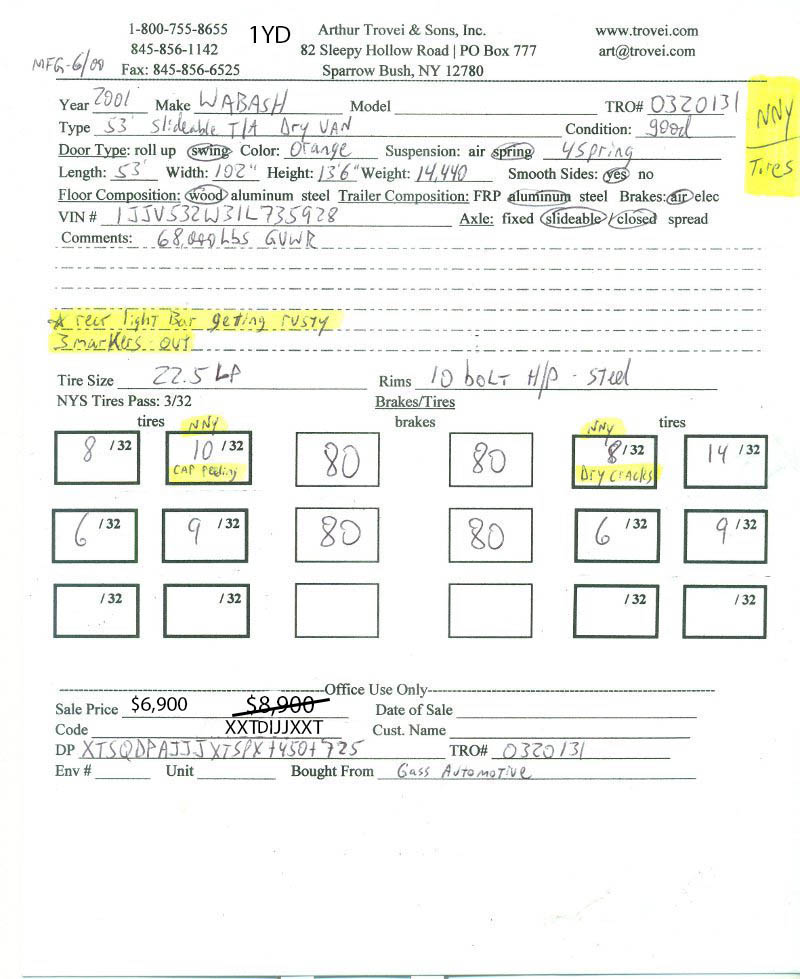 1-800-755-8655 1YD Arthur Trovei & Sons, Inc. www.trovei.com
845-856-1142 82 Sleepy Hollow Road | PO Box 777 art@trovei.com
MFG-6/00 Fax: 845-856-6525 Sparrow Bush, NY 12780
Year 2001 Make WABASH Model TRO# 0320131 NNY
Type 53' Slideable T/A Dry VAN Condition: good
Door Type: roll up swing Color: Orange Suspension: air spring 4 Spring Tires
Length: 53' Width: 102" Height: 13'6" Weight: 14,440 Smooth Sides: yes no
Floor Composition: wood aluminum steel Trailer Composition: FRP aluminum steel Brakes: air elec
VIN # 1JJV532W31L735928 Axle: fixed slideable/closed spread
Comments: 68,000 Lbs GVWR
* rear light Bar geting rusty
3 markers out
Tire Size 22.5 LP Rims 10 bOLT H/P - Steel
NYS Tires Pass: 3/32 Brakes/Tires
tires NNY brakes NNY tires
8 /32 10 /32 80 80 8 /32 14 /32
CAP Peeling Dry cracks
6 /32 9 /32 80 80 6 /32 9 /32
/32 /32 /32 /32
Office Use Only
Sale Price $6,900 $8,900 Date of Sale
Code XXTDIJJXXT Cust. Name
DP XTSQDPAJJJXTSPX+450+725 TRO# 0320131
Env # Unit Bought From Gass Automotive